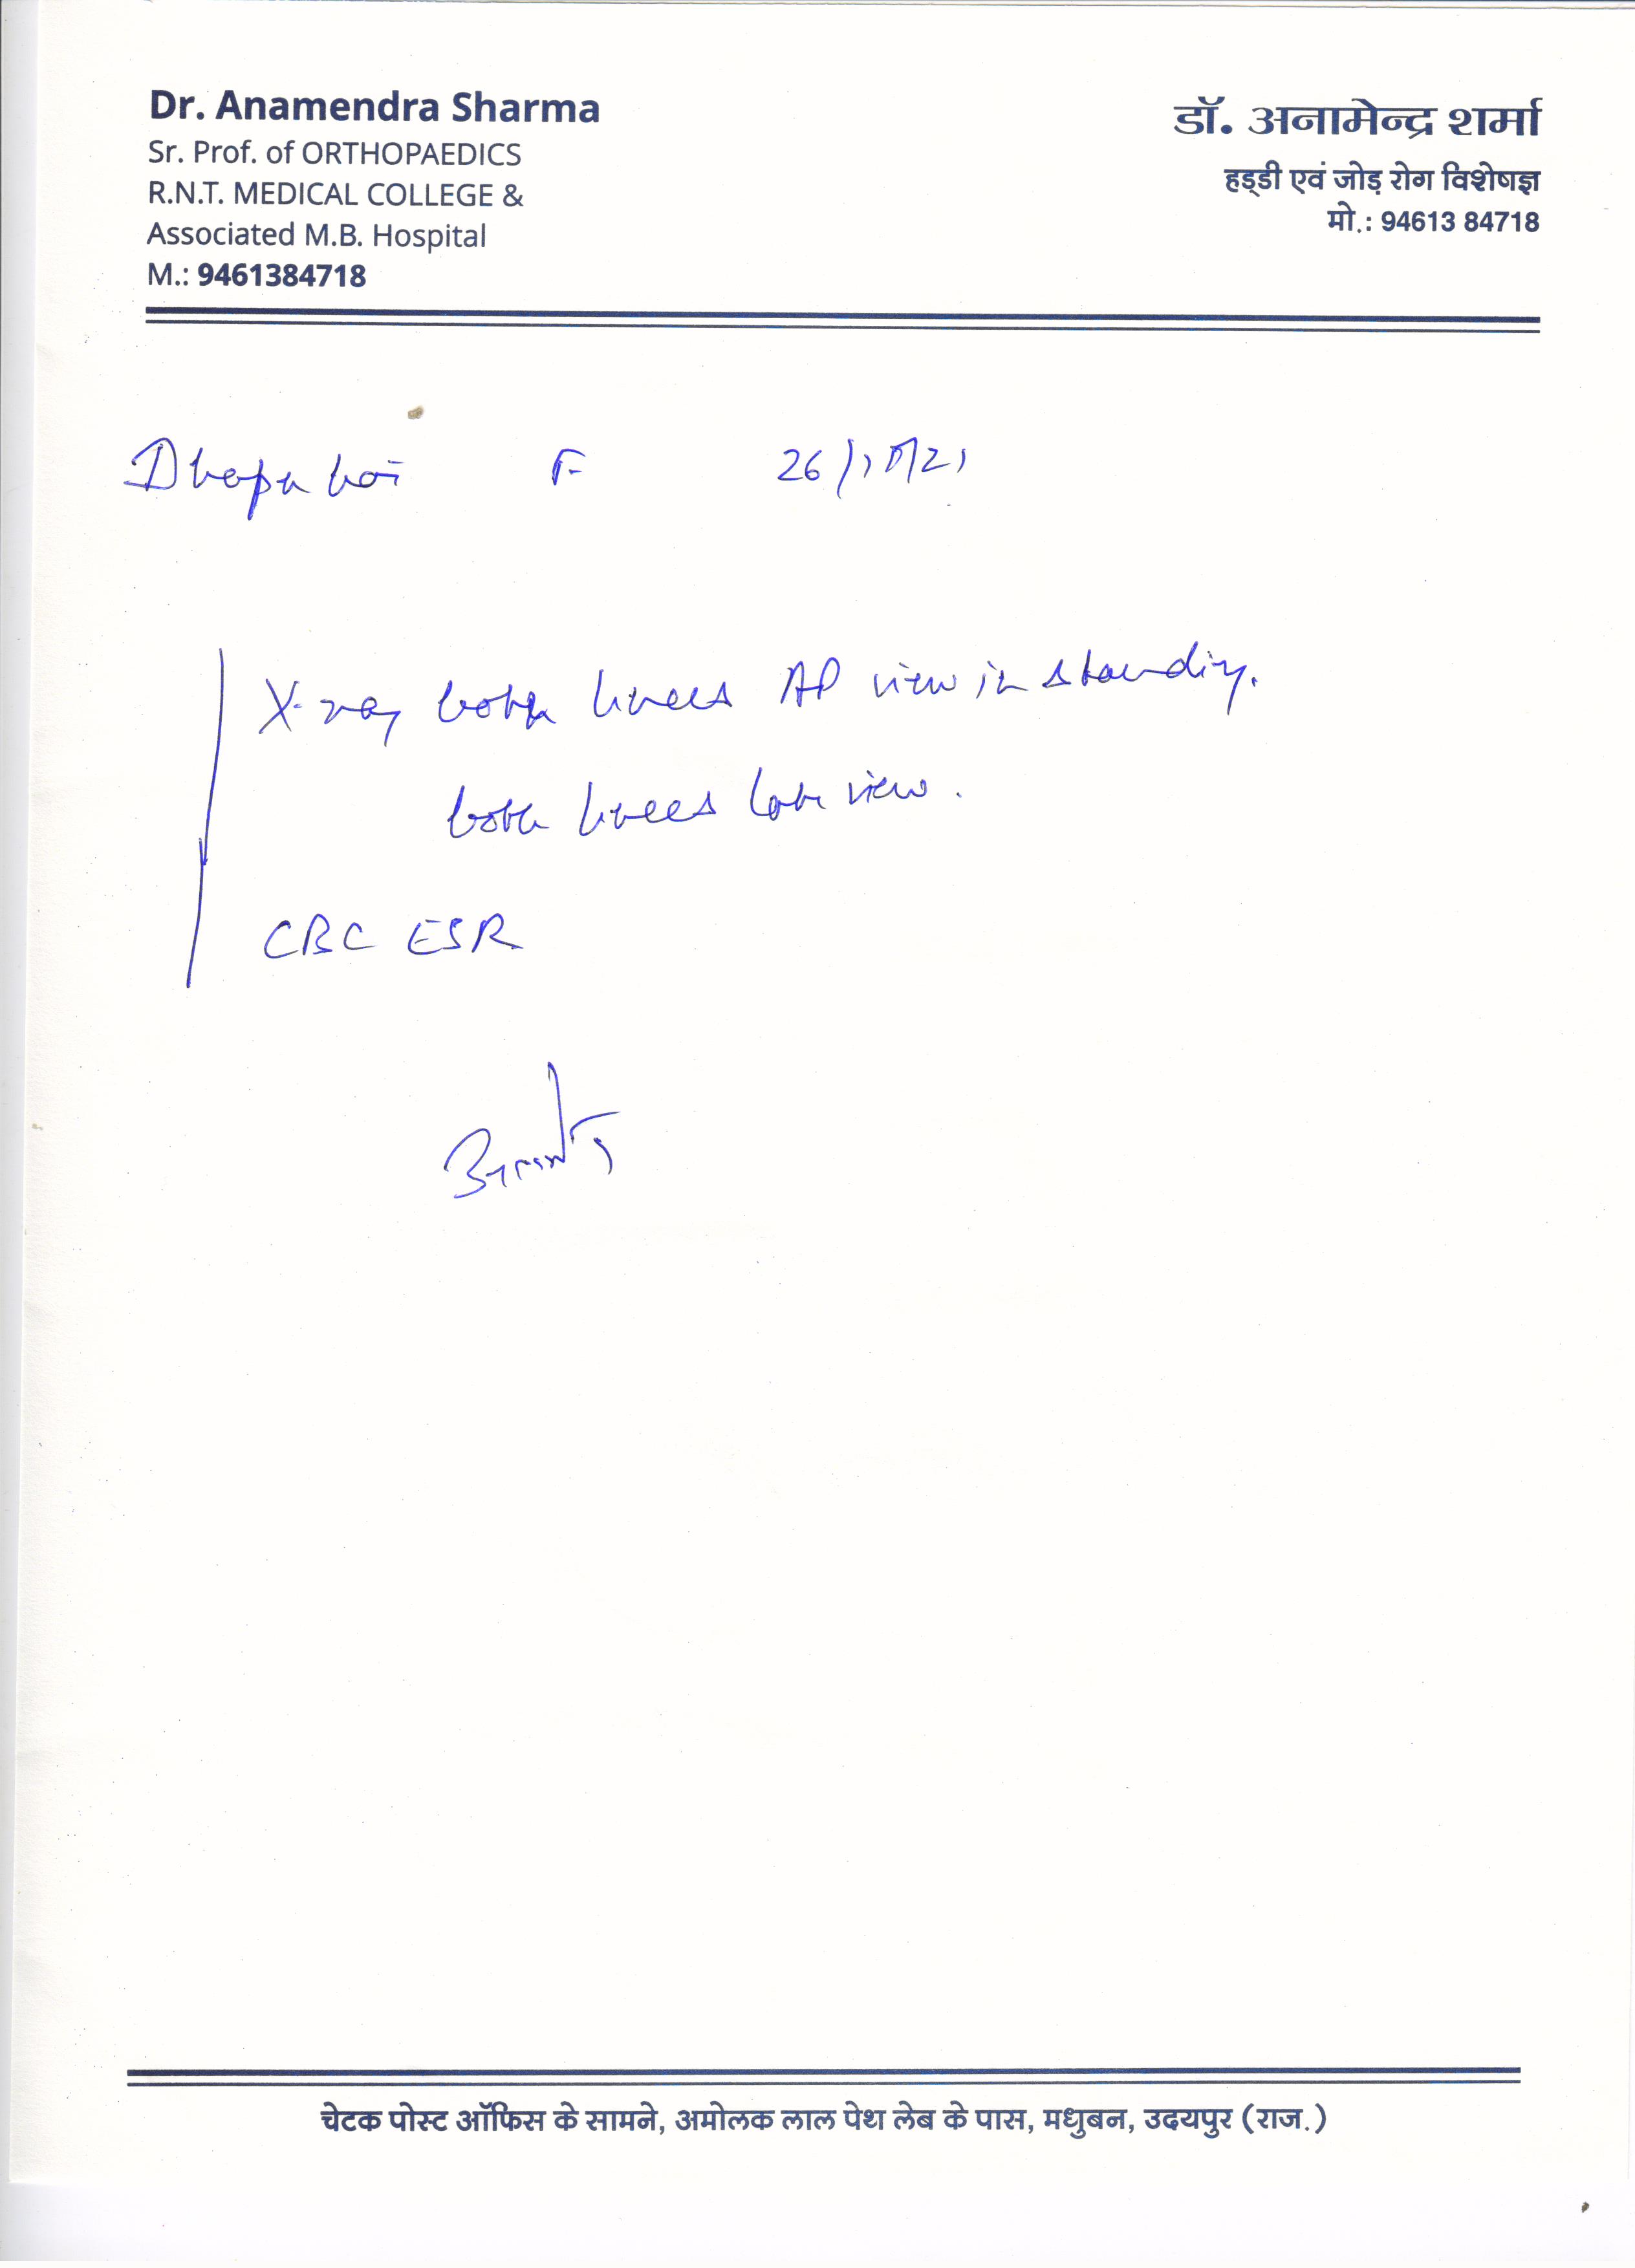 Dr. Anamendra Sharma
Sr. Prof. of ORTHOPAEDICS
R.N.T. MEDICAL COLLEGE &
Associated M.B. Hospital
M.: 9461384718
डॉ. अनामेन्द्र शर्मा
हड्डी एवं जोड़ रोग विशेषज्ञ
मो.: 94613 84718
Dhapu bai F 26/10/21
X-ray both knees AP view in standing.
both knees Late view.
CBC ESR
चेटक पोस्ट ऑफिस के सामने, अमोलक लाल पेथ लेब के पास, मधुबन, उदयपुर (राज.)